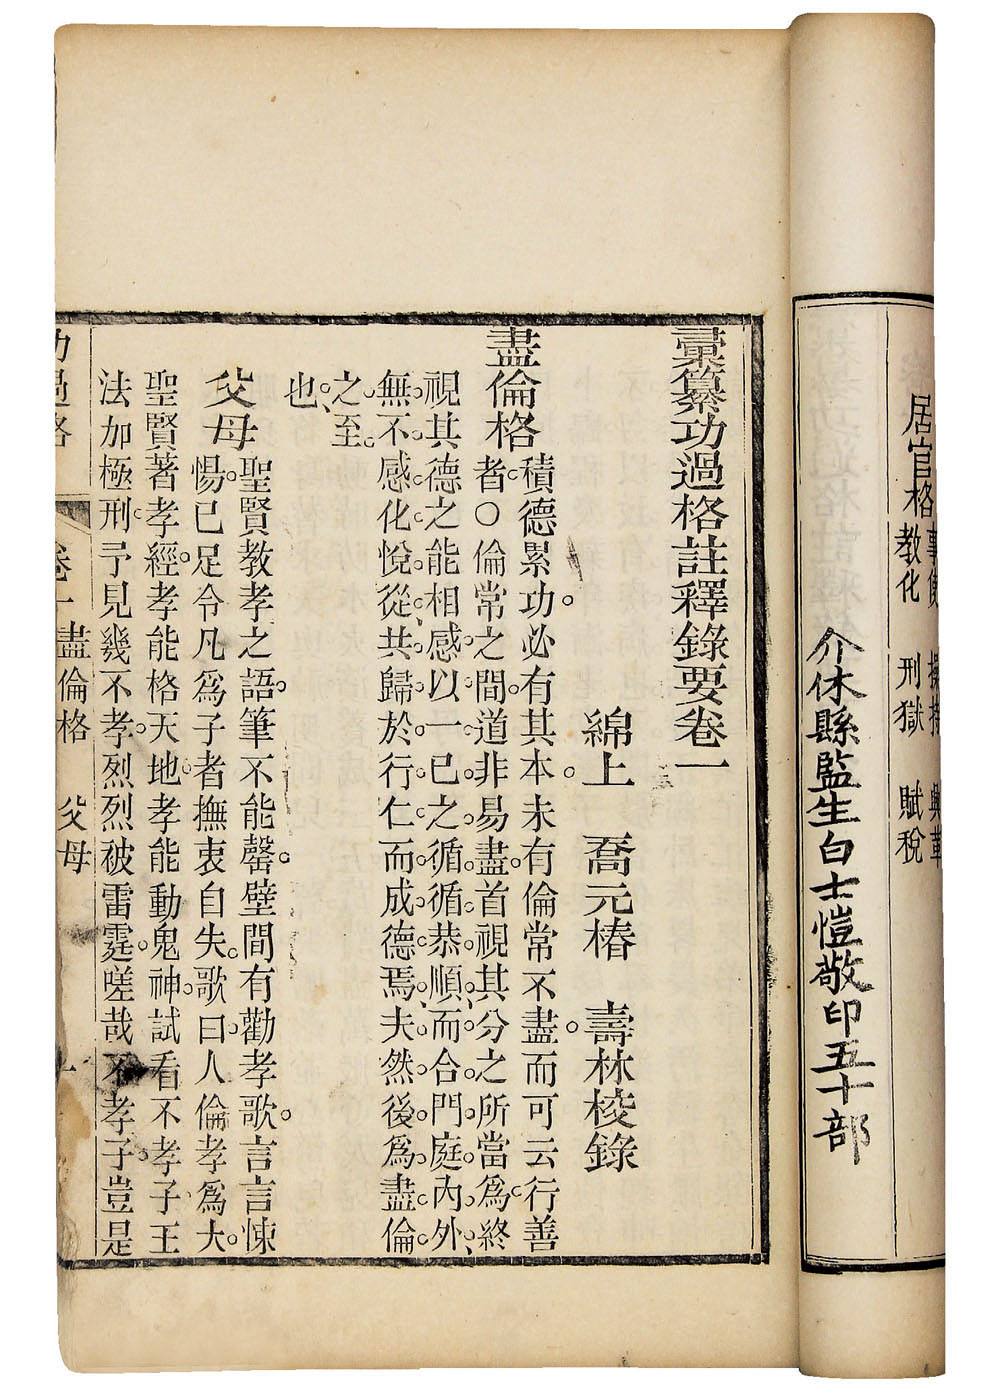 居官格
教化　刑獄　賦稅
介休縣監生白士愷敬印五十部
彙纂功過格註釋錄要卷一
綿上　喬元椿　壽林校錄
盡倫格
積德累功。必有其本。未有倫常不盡。而可云行善
者。○倫常之間。道非易盡。首視其分之所當爲。終
視其德之能相感。以一己之循循恭順、而合門庭內外、
無不感化悅從、共歸於行仁而成德焉、夫然後爲盡倫
之至
也、
父母
聖賢教孝之語。筆不能罄。壁間有勸孝歌。言言悚
惕。已足令凡爲子者撫衷自失。歌曰、人倫孝爲大。
聖賢著孝經。孝能格天地。孝能動鬼神。試看不孝子。王
法加極刑。予見幾不孝。烈烈被雷霆。嗟哉不孝子。豈是
功過格　卷一　盡倫格　父母　一